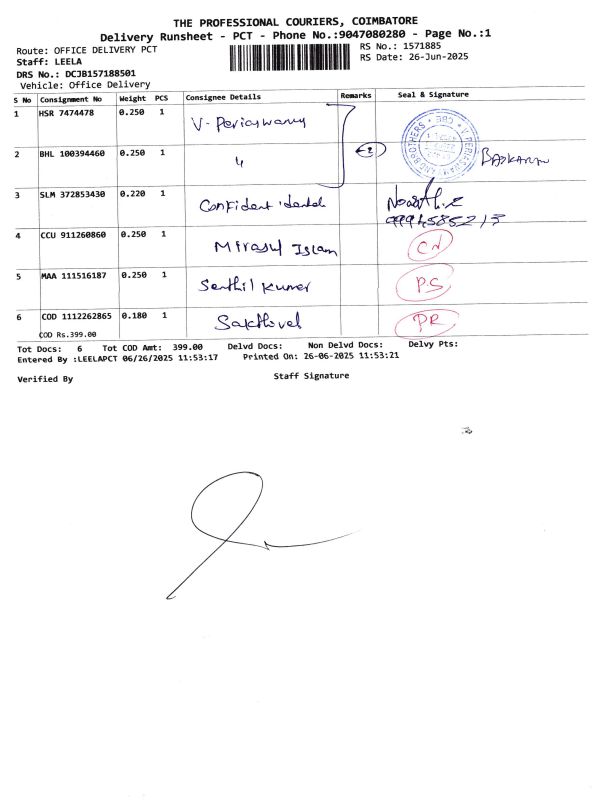 THE PROFESSIONAL COURIERS, COIMBATORE
Delivery Runsheet - PCT - Phone No.:9047080280 - Page No.:1
Route: OFFICE DELIVERY PCT
RS No.: 1571885
Staff: LEELA
RS Date: 26-Jun-2025
DRS No.: DCJB157188501
Vehicle: Office Delivery
S No Consignment No Weight PCS Consignee Details Remarks Seal & Signature
1 HSR 7474478 0.250 1 V- Periaswamy
V. PERIASWAMY AND BROTHERS * CBE *
2 BHL 100394460 0.250 1 " 2 BASKARAN
3 SLM 372853430 0.220 1 Confident dental
9994585213
4 CCU 911260860 0.250 1 Mirasul Islam CN
5 MAA 111516187 0.250 1 Senthil Kumar PS
6 COD 1112262865 0.180 1 Sakthivel PR
COD Rs.399.00
Tot Docs: 6 Tot COD Amt: 399.00 Delvd Docs: Non Delvd Docs: Delvy Pts:
Entered By :LEELAPCT 06/26/2025 11:53:17 Printed On: 26-06-2025 11:53:21
Verified By Staff Signature